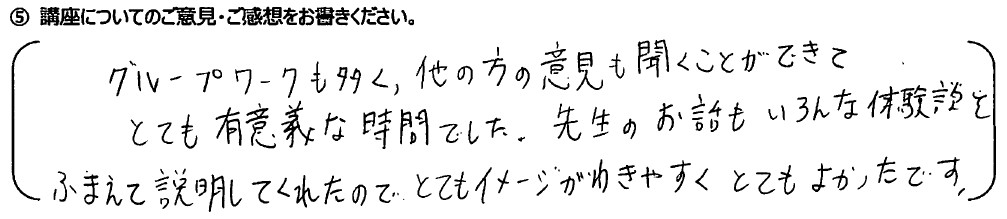 ⑤ 講座についてのご意見・ご感想をお書きください。
グループワークも多く、他の方の意見も聞くことができて
とても有意義な時間でした。先生のお話もいろんな体験談を
ふまえて説明してくれたのでとてもイメージがわきやすくとてもよかったです。